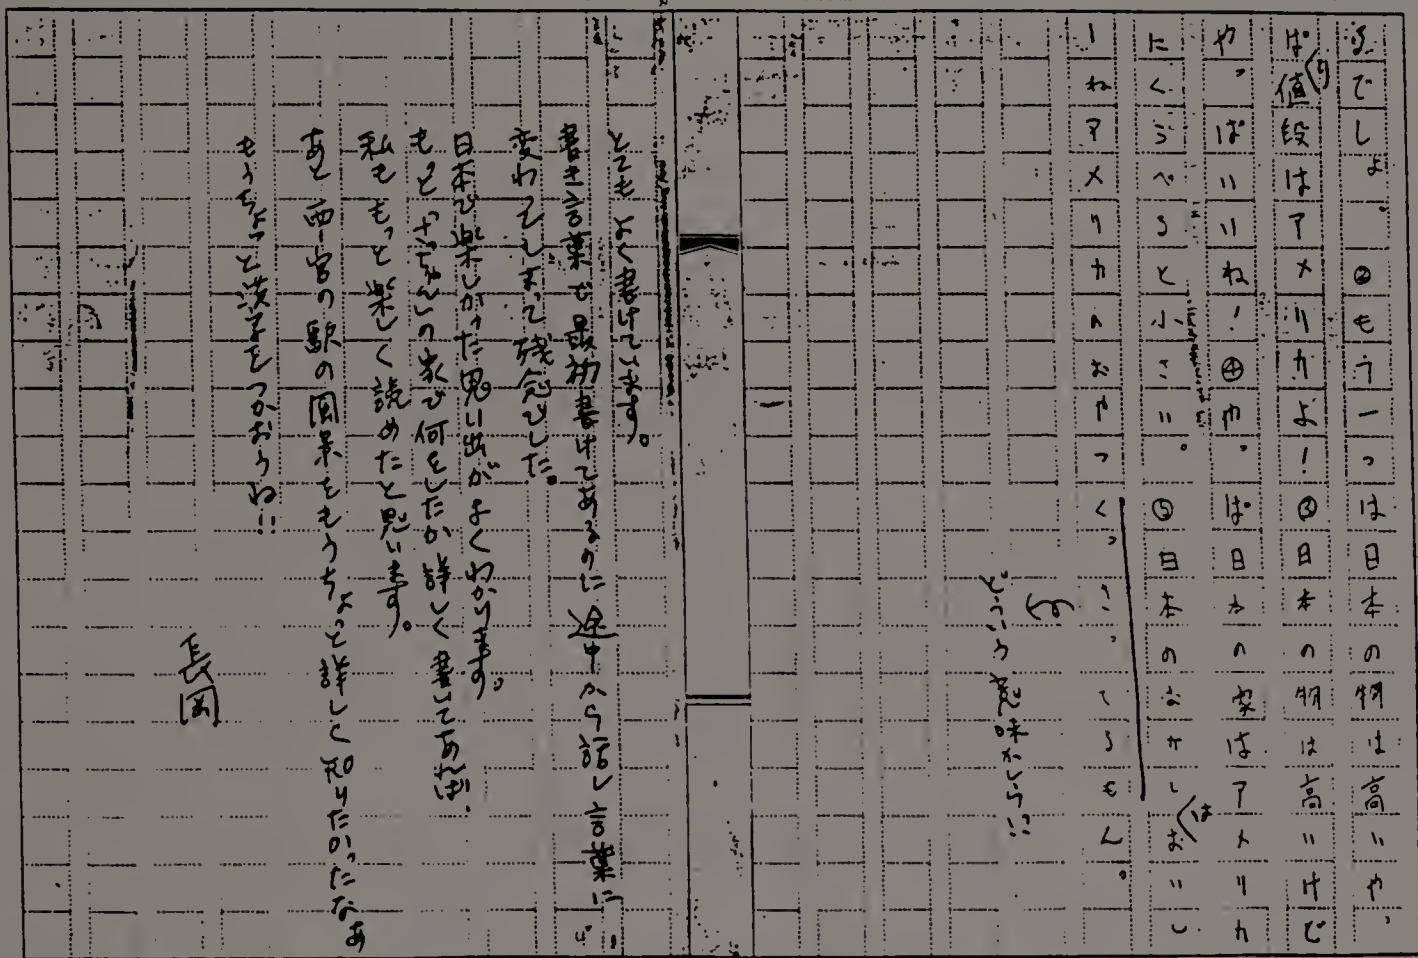 るでしょ。②もう一つは日本の物は高いや、
ぱり値段はアメリカよ!③日本の物は高いけど
や、ぱいいね!④や、ぱ日本の家はアメリカ
にくらべると小さい。⑤日本のおかしはおいし
ーねアメリカのおやつくっさってるもん。
どういう意味かしら!!
とてもよく書けています。
書き言葉で最初書けてあるのに途中から話し言葉に
変わってしまって残念でした。
日本で楽しかった思い出がよくわかります。
もっとおばさんの家で何をしたか詳しく書いてあれば、
私ももっと楽しく読めたと思います。
あと西宮の駅の風景をもうちょっと詳しく知りたかったなあ
もうちょっと漢字をつかおうね!!
長岡